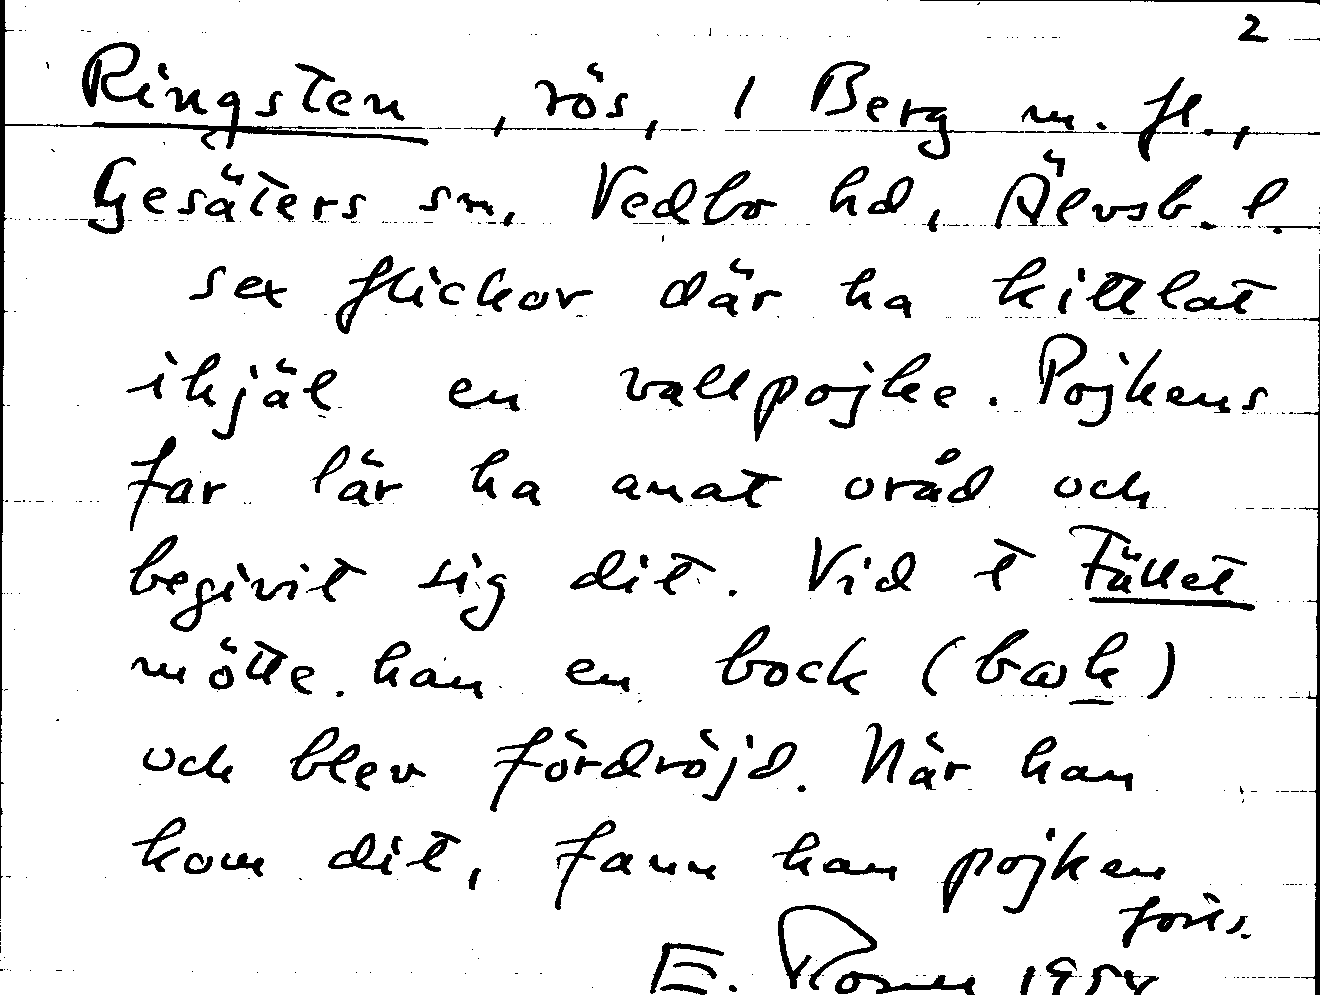 2
Ringsten, rös, 1 Berg m. fl.,
Gesäters sn, Vedbo hd, Älvsb. l.
sex flickor där ha kittlat
ihjäl en vallpojke. Pojkens
far lär ha anat oråd och
begivit sig dit. Vid t Fället
mötte han en bock (bωk)
och blev fördröjd. När han
kom dit, fann han pojken
forts.
E. 195